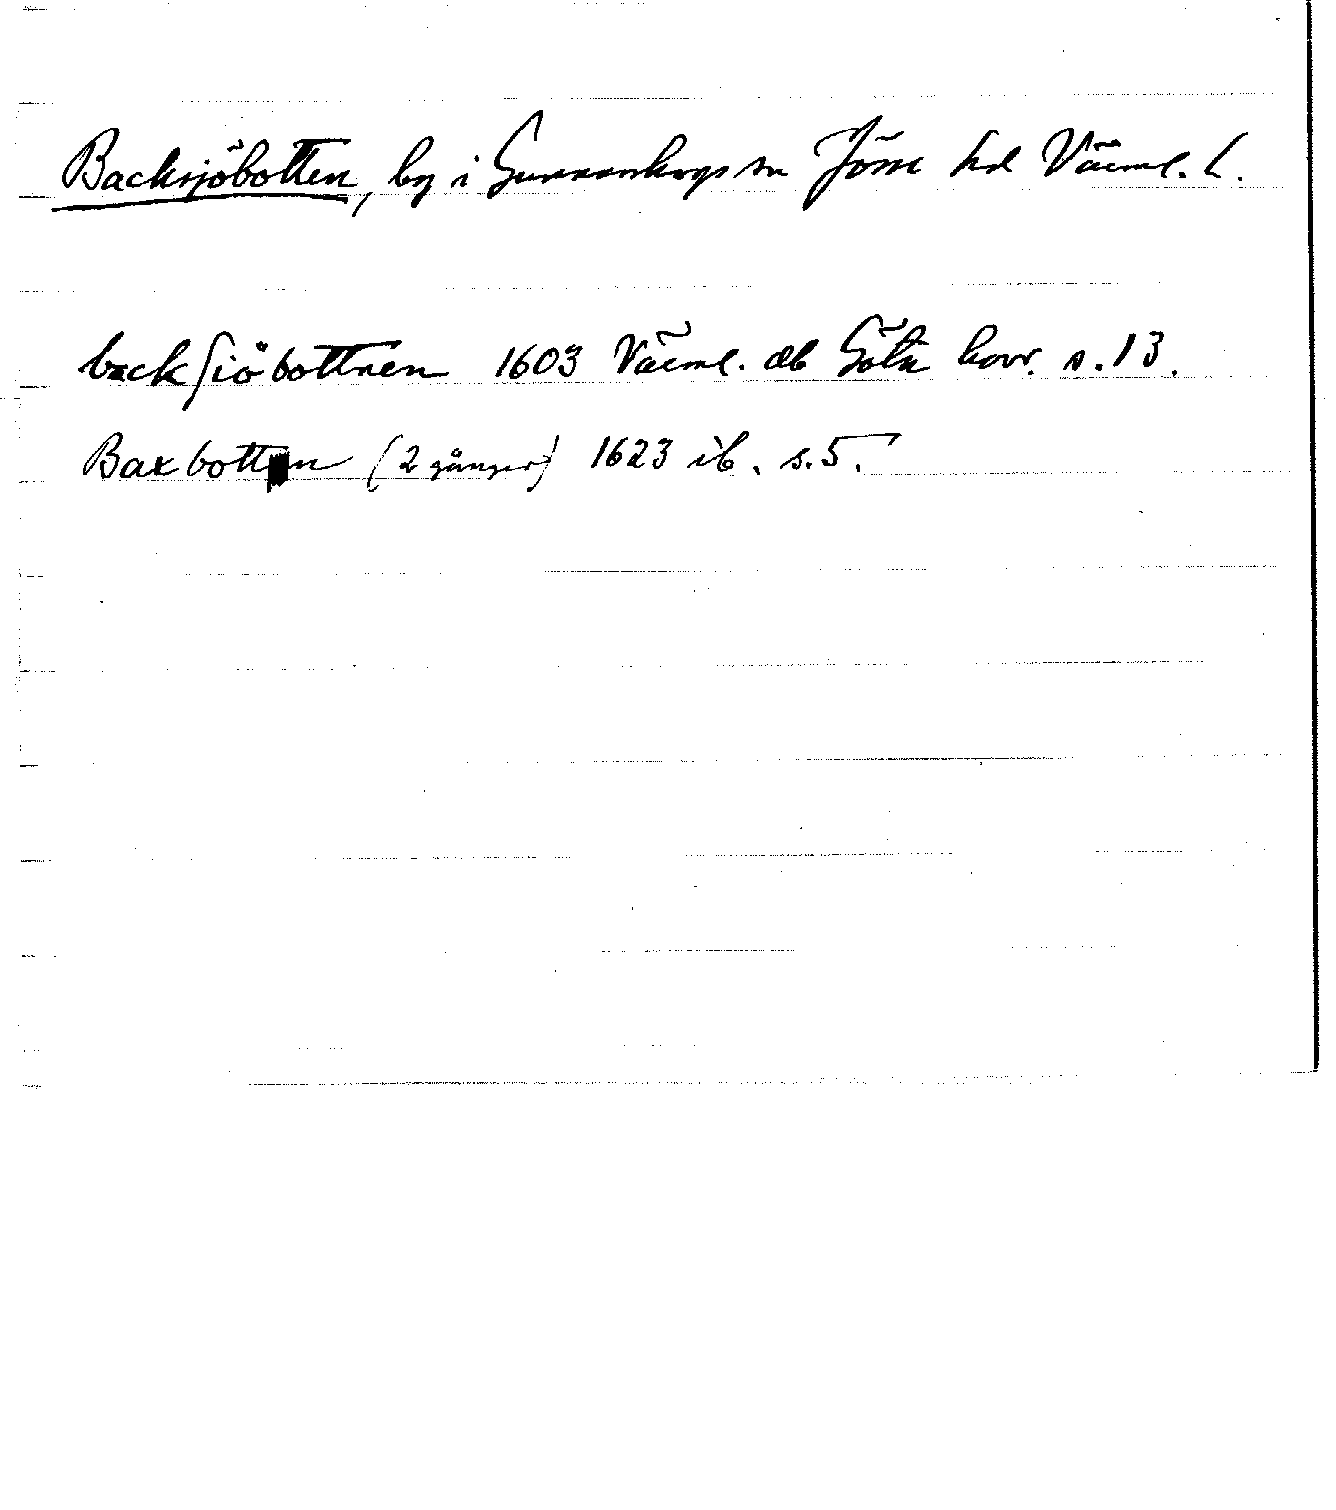 Backsjöbotten, by i Gunnarskogs sn Jösse hd Värml. l.
backsiöbottnen 1603 Värml. db Göta hovr. s. 13.
Baxbottn (2 gånger) 1623 ib. s. 5.